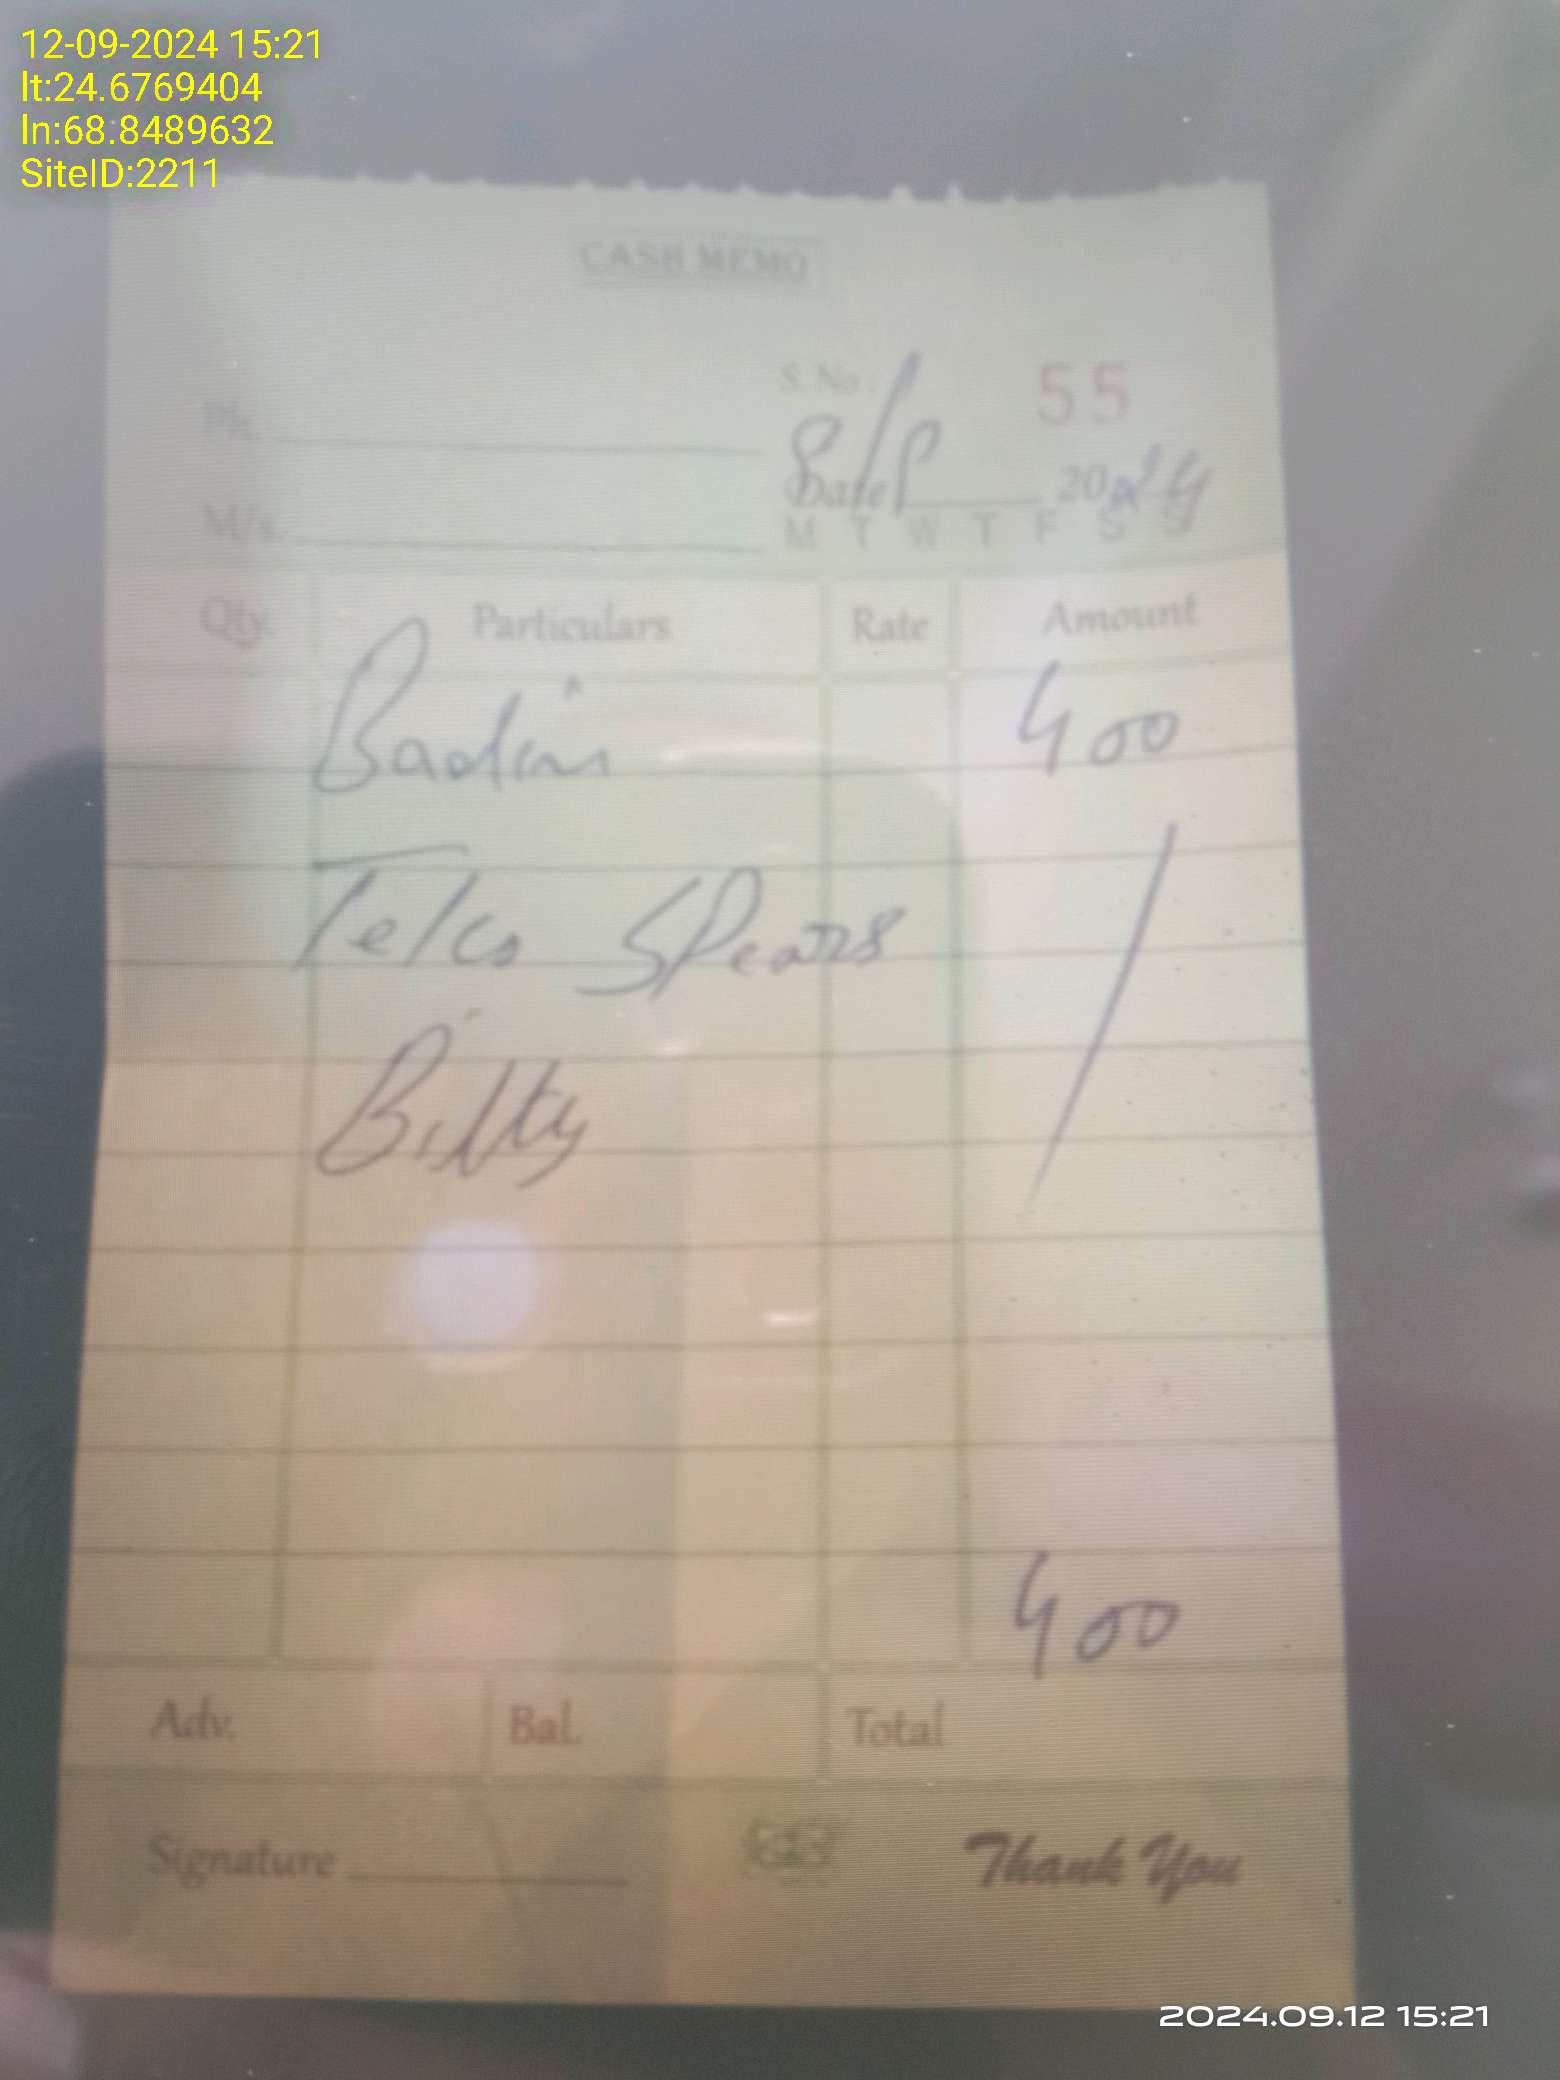 12-09-2024 15:21
lt:24.6769404
ln:68.8489632
SiteID:2211
CASH MEMO
S. No. 55
Ph.
Date 2024
M/s.
M T W T F S S
Qty. Particulars Rate Amount
Badin 400
Telco SPears
Bilty
400
Adv. Bal. Total
Signature Thank You
2024.09.12 15:21